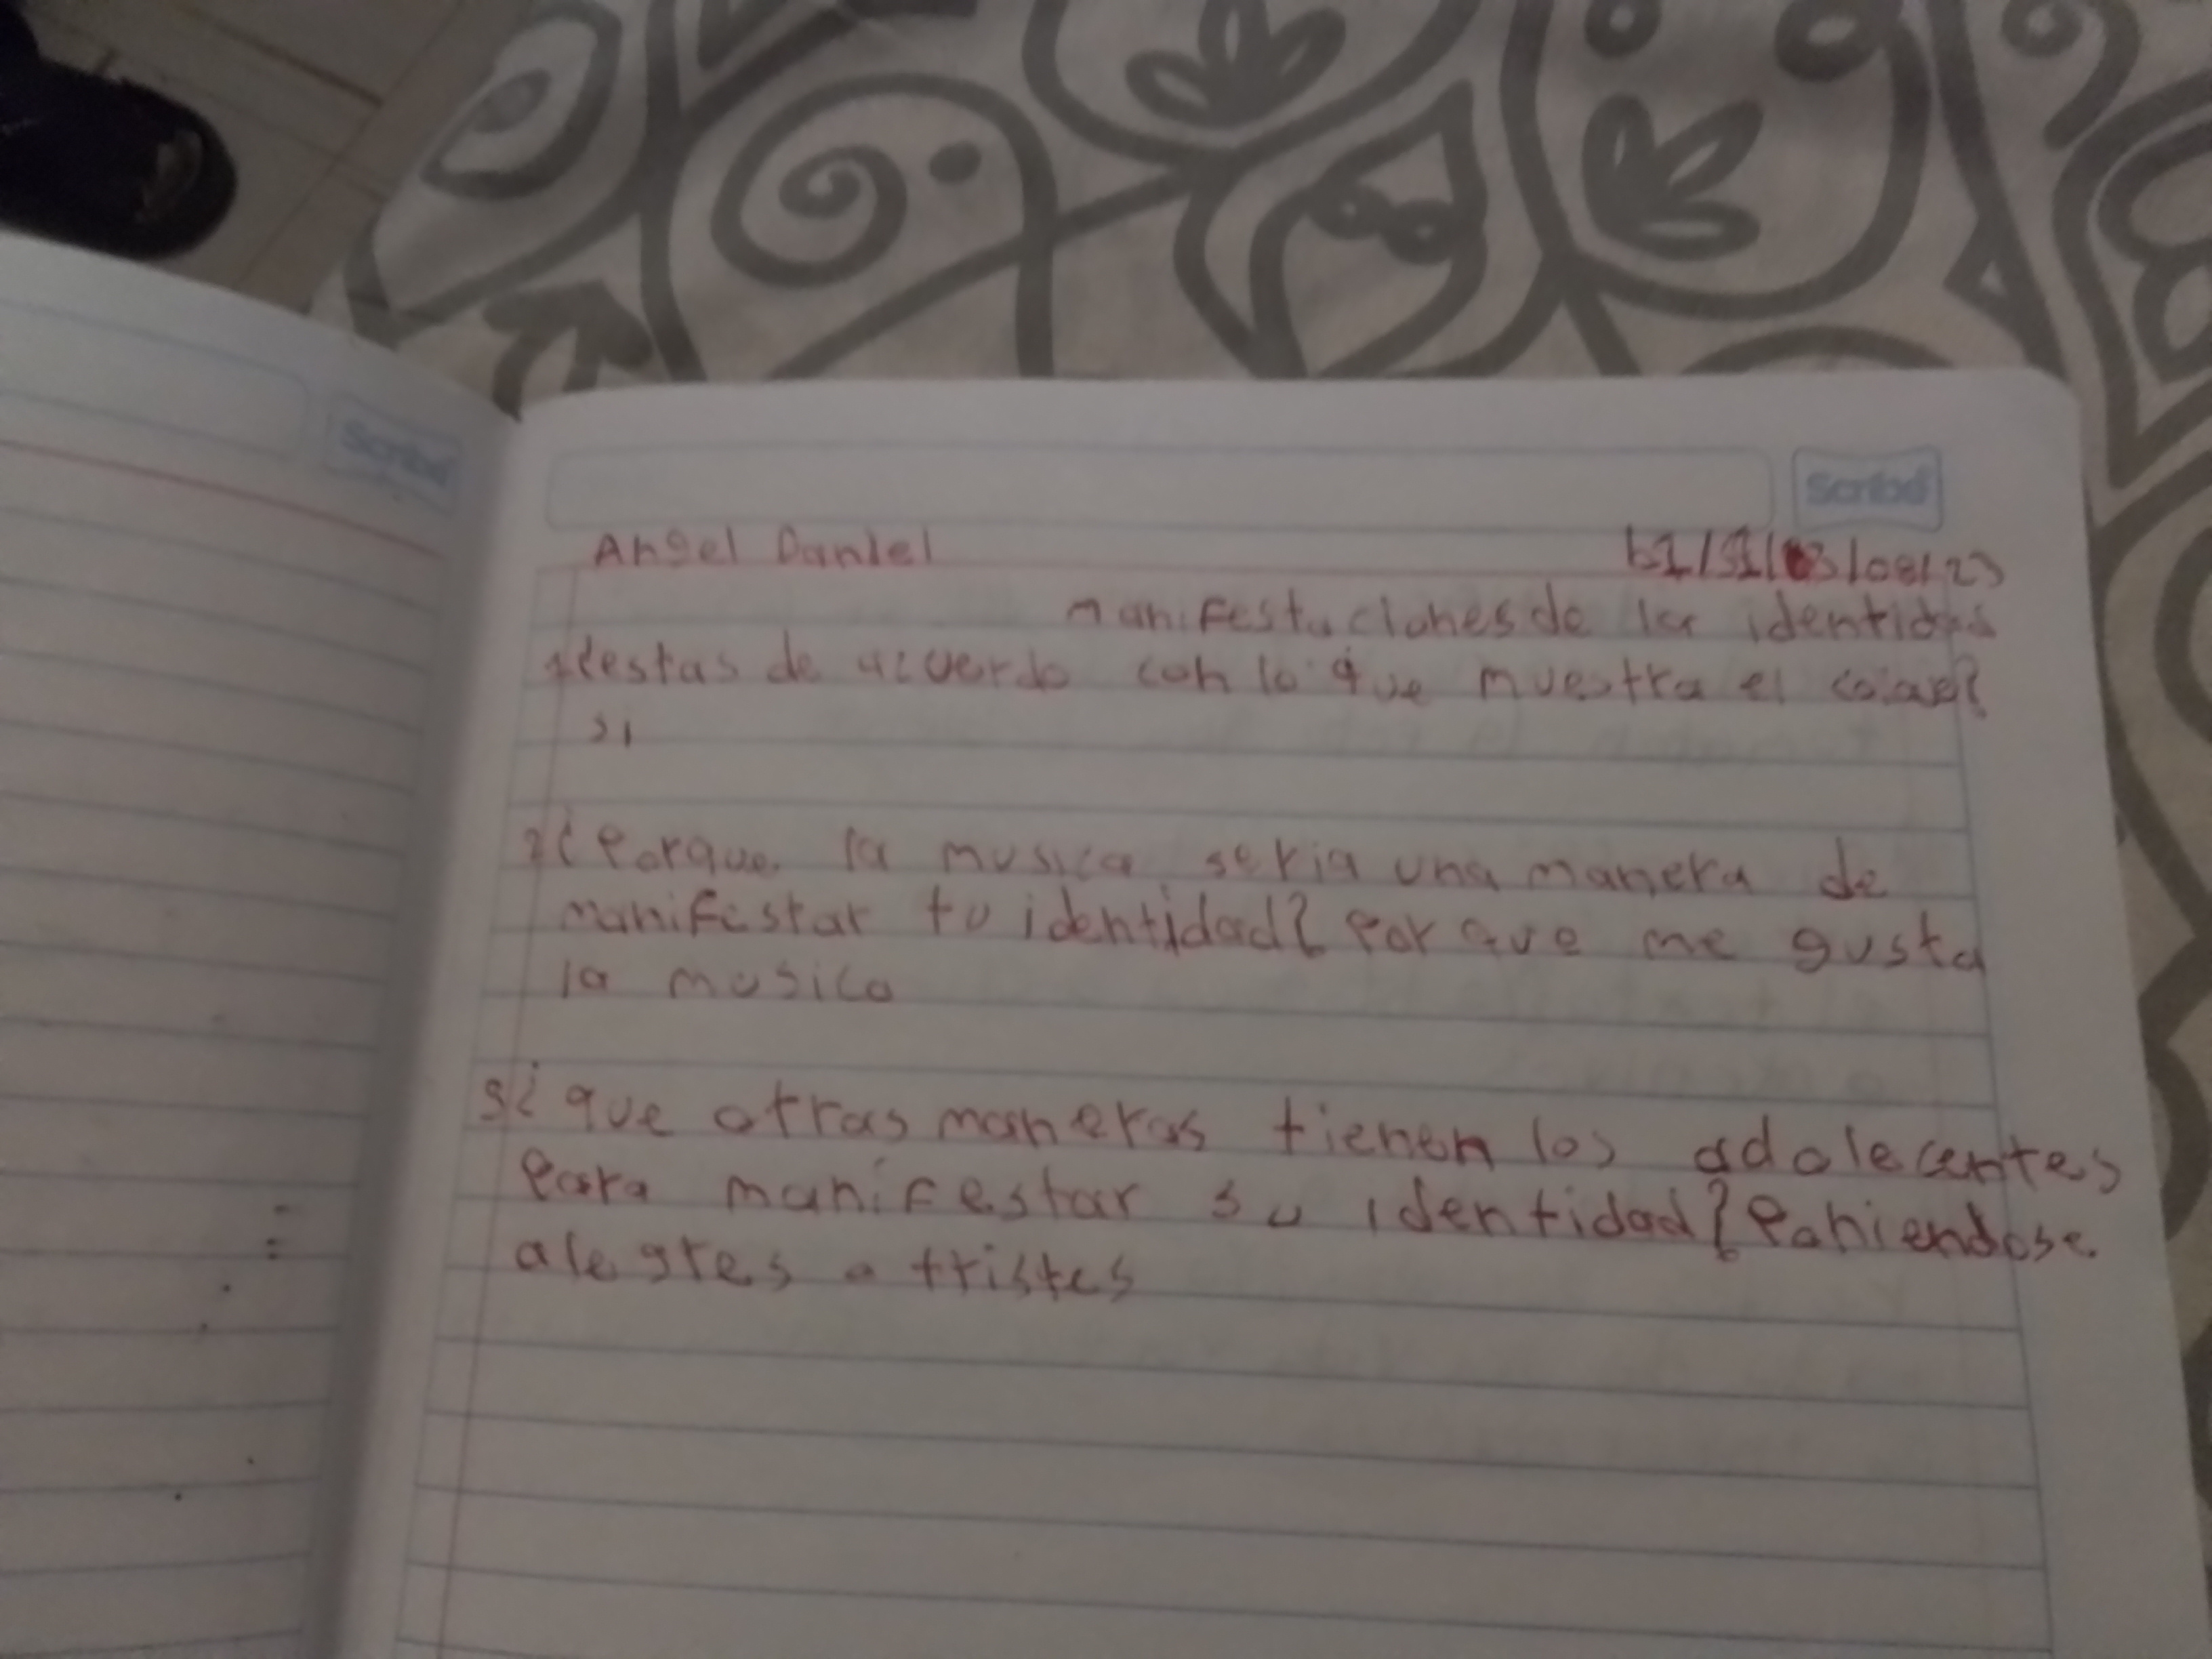 Scribd
Scribd
Angel Daniel
manifestaciones de la identidad
1¿estas de acuerdo con lo que muestra el
si
2¿Porque la musica seria una manera de
manifestar tu identidad? Por que me gusta
la musica
3¿que otras maneras tienen los adolecentes
Para manifestar su identidad? Poniendose
alegres o tristes